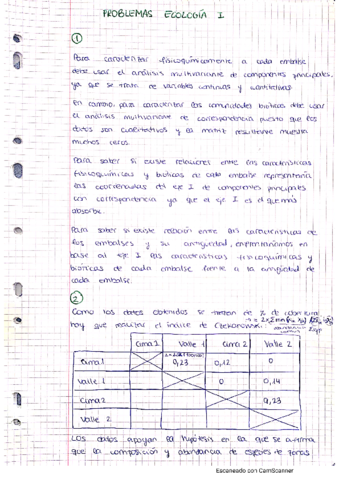 PROBLEMAS ECOLOGÍA I
1
Para caracterizar fisicoquímicamente a cada embalse
debe usar el análisis multivariante de componentes principales,
ya que se trata de variables continuas y cuantitativas.
En cambio, para caracterizar las comunidades bióticas debe usar
el análisis multivariante de correspondencia puesto que los
datos son cualitativos y la matriz resultante muestra
muchos ceros.
Para saber si existe relaciones entre las características
fisicoquímicas y bióticas de cada embalse representaría
las coordenadas del eje I de componentes principales
con correspondencia ya que el eje I es el que más
absorbe.
Para saber si existe relación entre las características de
los embalses y su antigüedad, enfrentaríamos en
base al eje I las características fisicoquímicas y
bióticas de cada embalse frente a la antigüedad de
cada embalse.
2
Como los datos obtenidos se tratan de % de cobertura
hay que realizar el índice de Czekanowski.
Cima 2 Valle 1 Cima 2 Valle 2
Cima 1 0,23 0,12 0
Valle 1 0 0,14
Cima 2 0,23
Valle 2
Los datos apoyan la hipótesis en la que se afirma
que la composición y abundancia de especies de zonas
Escaneado con CamScanner